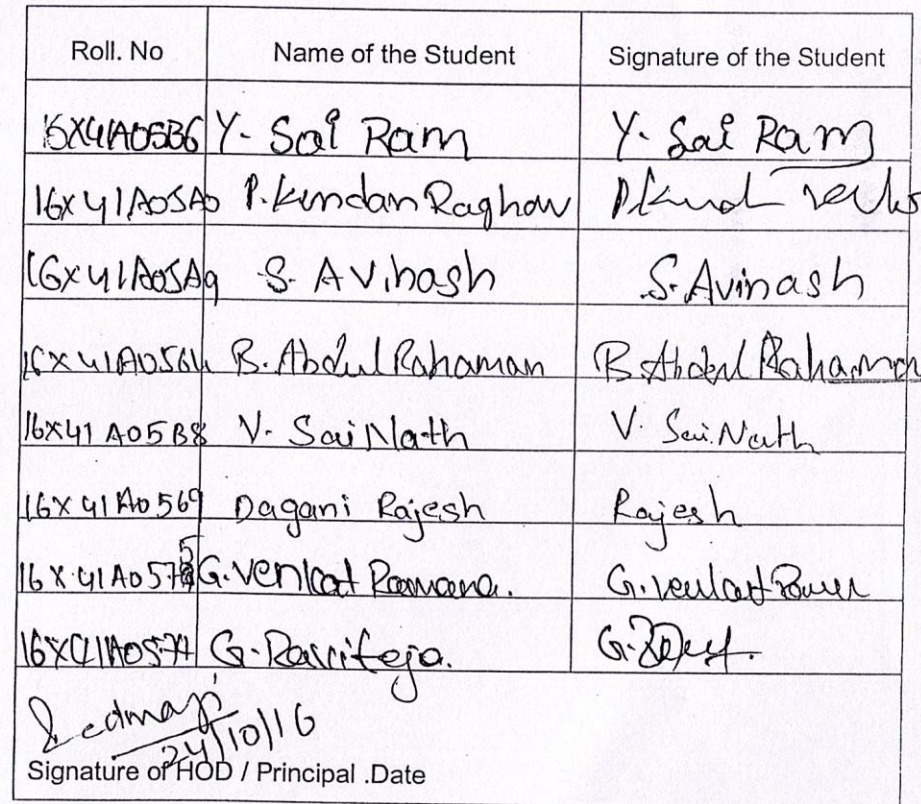 Roll. No Name of the Student Signature of the Student
16X41A05B6 Y. Sai Ram Y. Sai Ram
16X41A05A0 P. Kundan Raghav
16X41A05A9 S. Avinash S. Avinash
16X41A0564 B. Abdul Rahaman B. Abdul Rahaman
16X41A05B8 V. Sai Nath V. Sai Nath
16X41A0569 Dagani Rajesh Rajesh
16X41A0575 G. Venkat Ramana. G. Venkat
16X41A0574 G. Raviteja. G.
24/10/16
Signature of HOD / Principal .Date